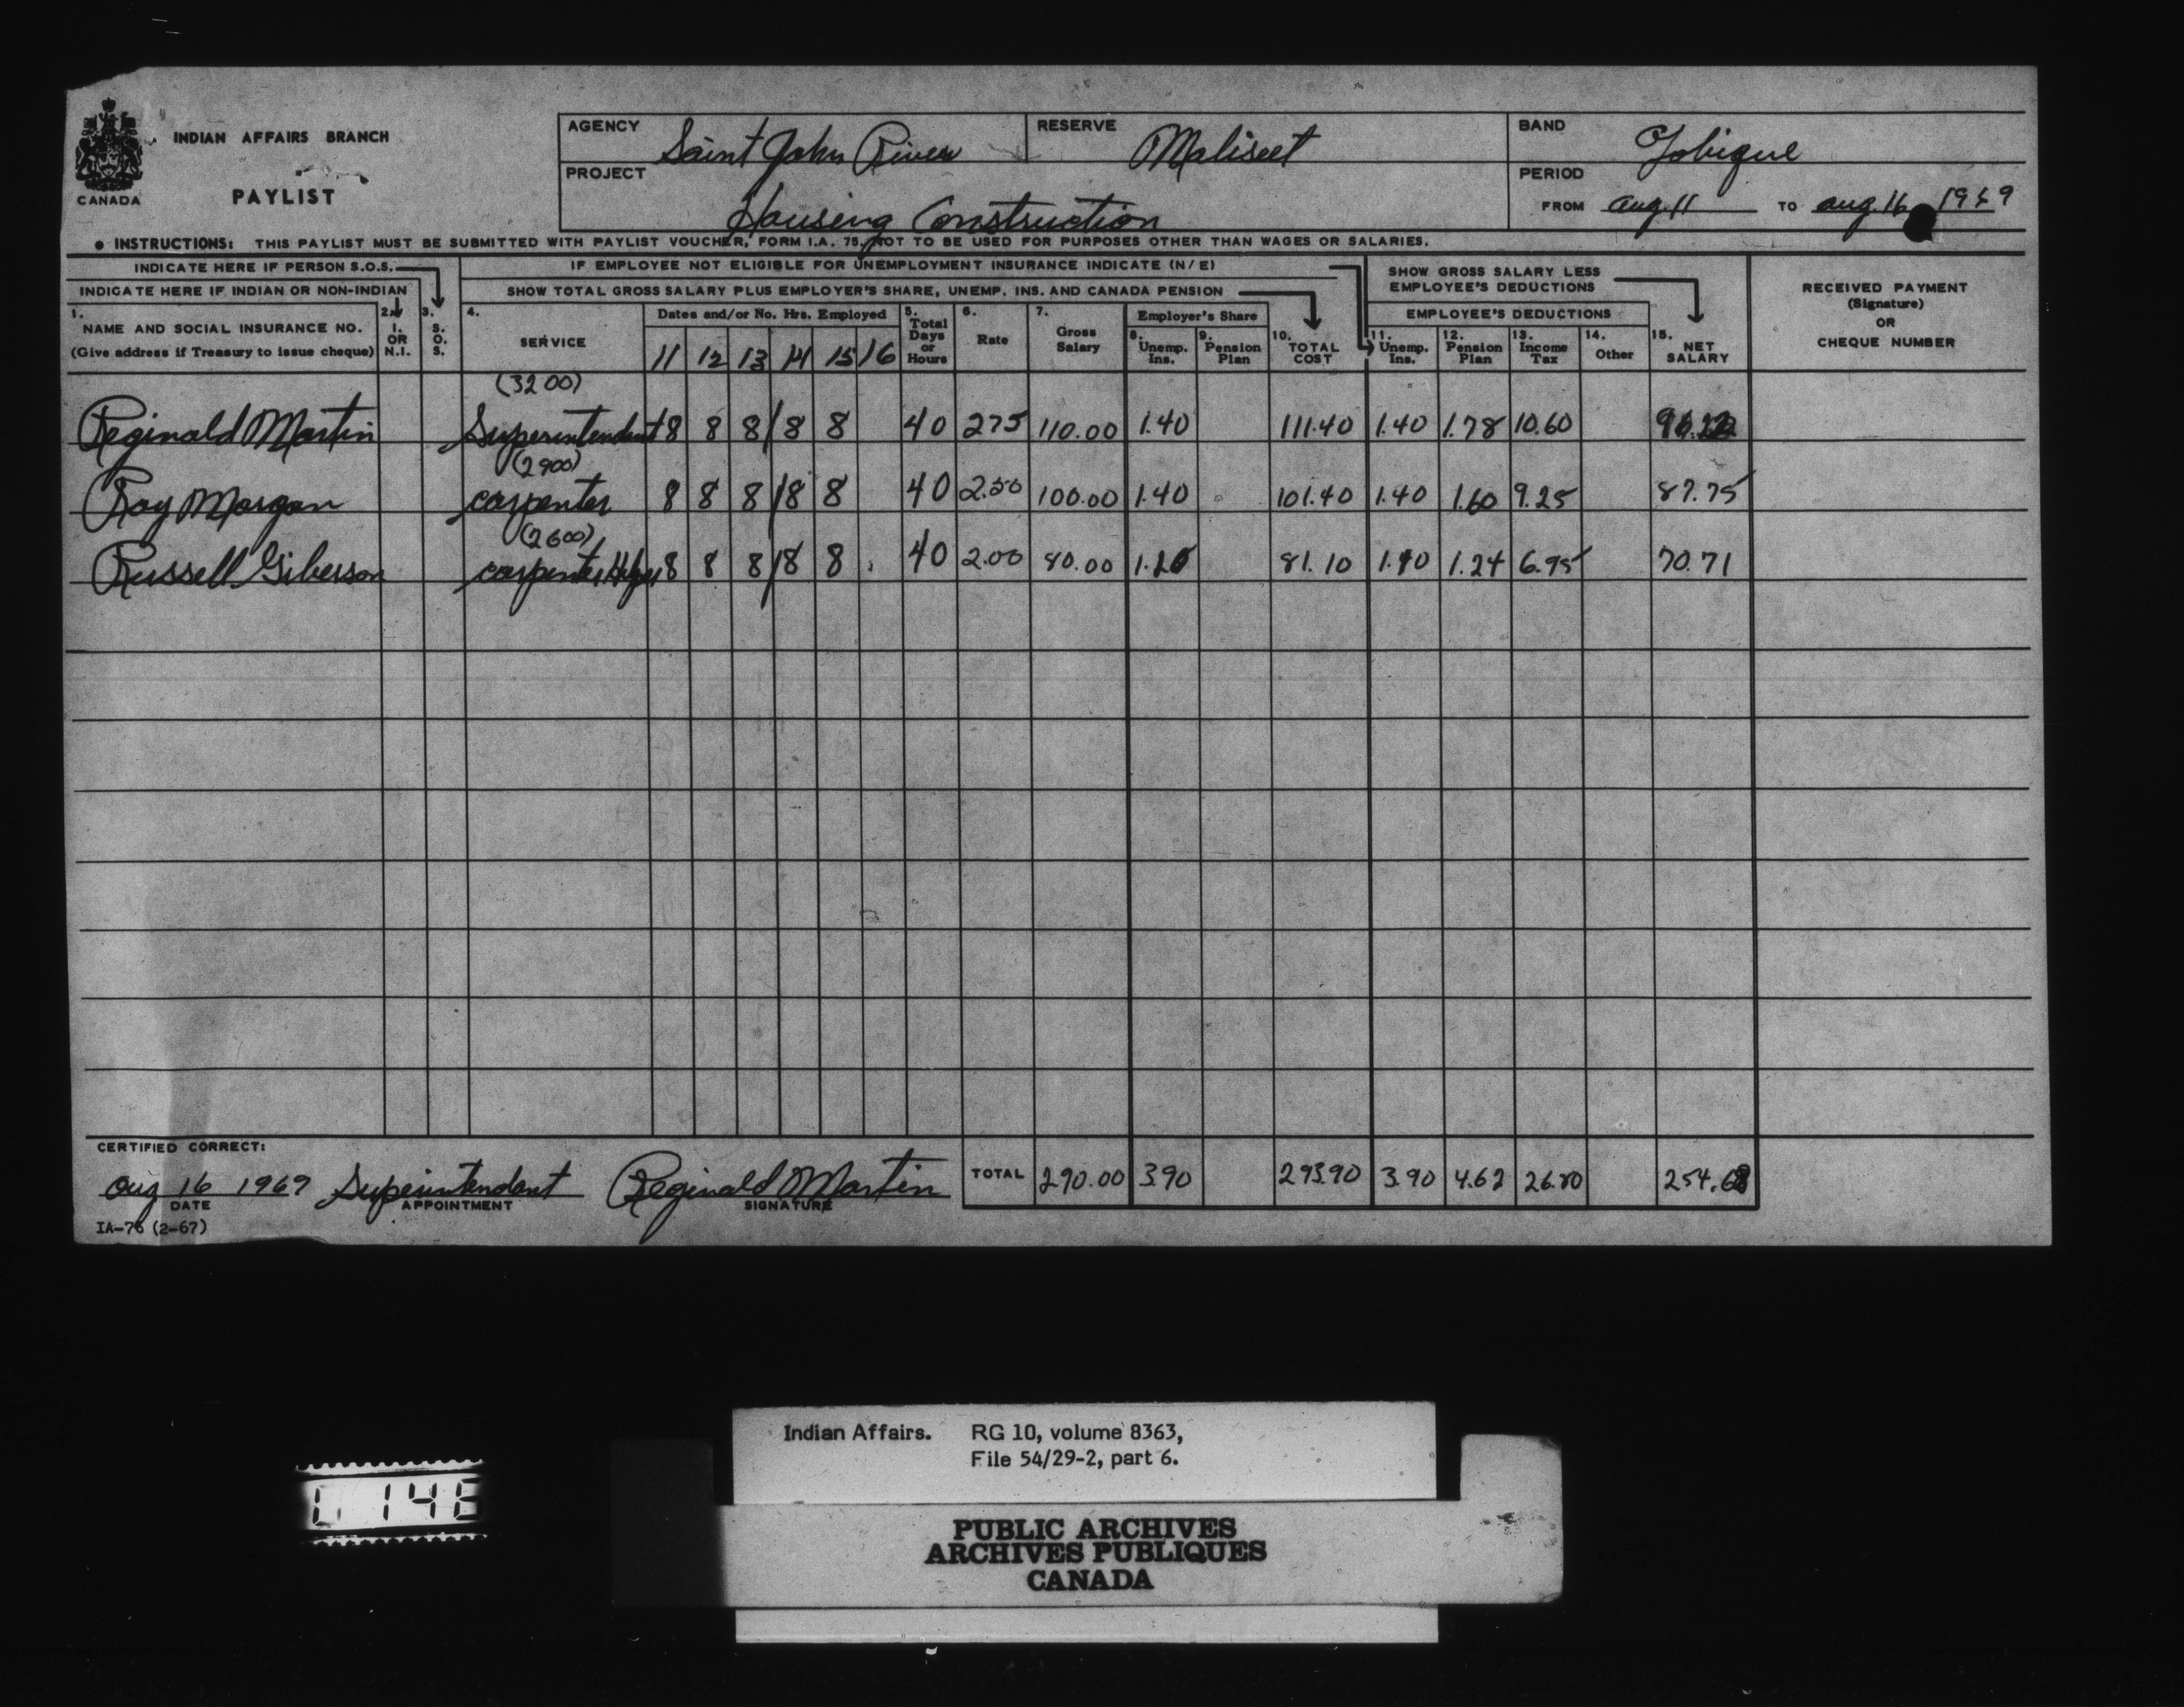 INDIAN AFFAIRS BRANCH
CANADA
PAYLIST
AGENCY Saint John River
RESERVE Maliseet
BAND Tobique
PROJECT Housing Construction
PERIOD
FROM Aug. 11 TO Aug. 16 1969
● INSTRUCTIONS: THIS PAYLIST MUST BE SUBMITTED WITH PAYLIST VOUCHER, FORM I.A. 75. NOT TO BE USED FOR PURPOSES OTHER THAN WAGES OR SALARIES.
INDICATE HERE IF PERSON S.O.S.
INDICATE HERE IF INDIAN OR NON-INDIAN
IF EMPLOYEE NOT ELIGIBLE FOR UNEMPLOYMENT INSURANCE INDICATE (N/E)
SHOW TOTAL GROSS SALARY PLUS EMPLOYER'S SHARE, UNEMP. INS. AND CANADA PENSION
SHOW GROSS SALARY LESS EMPLOYEE'S DEDUCTIONS
RECEIVED PAYMENT
(Signature)
OR
CHEQUE NUMBER
1. NAME AND SOCIAL INSURANCE NO.
(Give address if Treasury to issue cheque)
2. I. OR N.I.
3. S. O. S.
4. SERVICE
Dates and/or No. Hrs. Employed
11 12 13 14 15 16
5. Total Days or Hours
6. Rate
7. Gross Salary
Employer's Share
8. Unemp. Ins.
9. Pension Plan
10. TOTAL COST
EMPLOYEE'S DEDUCTIONS
11. Unemp. Ins.
12. Pension Plan
13. Income Tax
14. Other
15. NET SALARY
(3200)
Reginald Martin Superintendent 8 8 8 8 8 40 275 110.00 1.40 111.40 1.40 1.78 10.60 96.22
(2900)
Roy Morgan carpenter 8 8 8 8 8 40 2.50 100.00 1.40 101.40 1.40 1.60 9.25 87.75
(2600)
Russell Giberson carpenter Helper 8 8 8 8 8 40 2.00 80.00 1.10 81.10 1.10 1.24 6.95 70.71
CERTIFIED CORRECT:
Aug 16 1969 Superintendent Reginald Martin
DATE APPOINTMENT SIGNATURE
TOTAL 290.00 3.90 293.90 3.90 4.62 26.80 254.68
IA-76 (2-67)
Indian Affairs. RG 10, volume 8363,
File 54/29-2, part 6.
PUBLIC ARCHIVES
ARCHIVES PUBLIQUES
CANADA